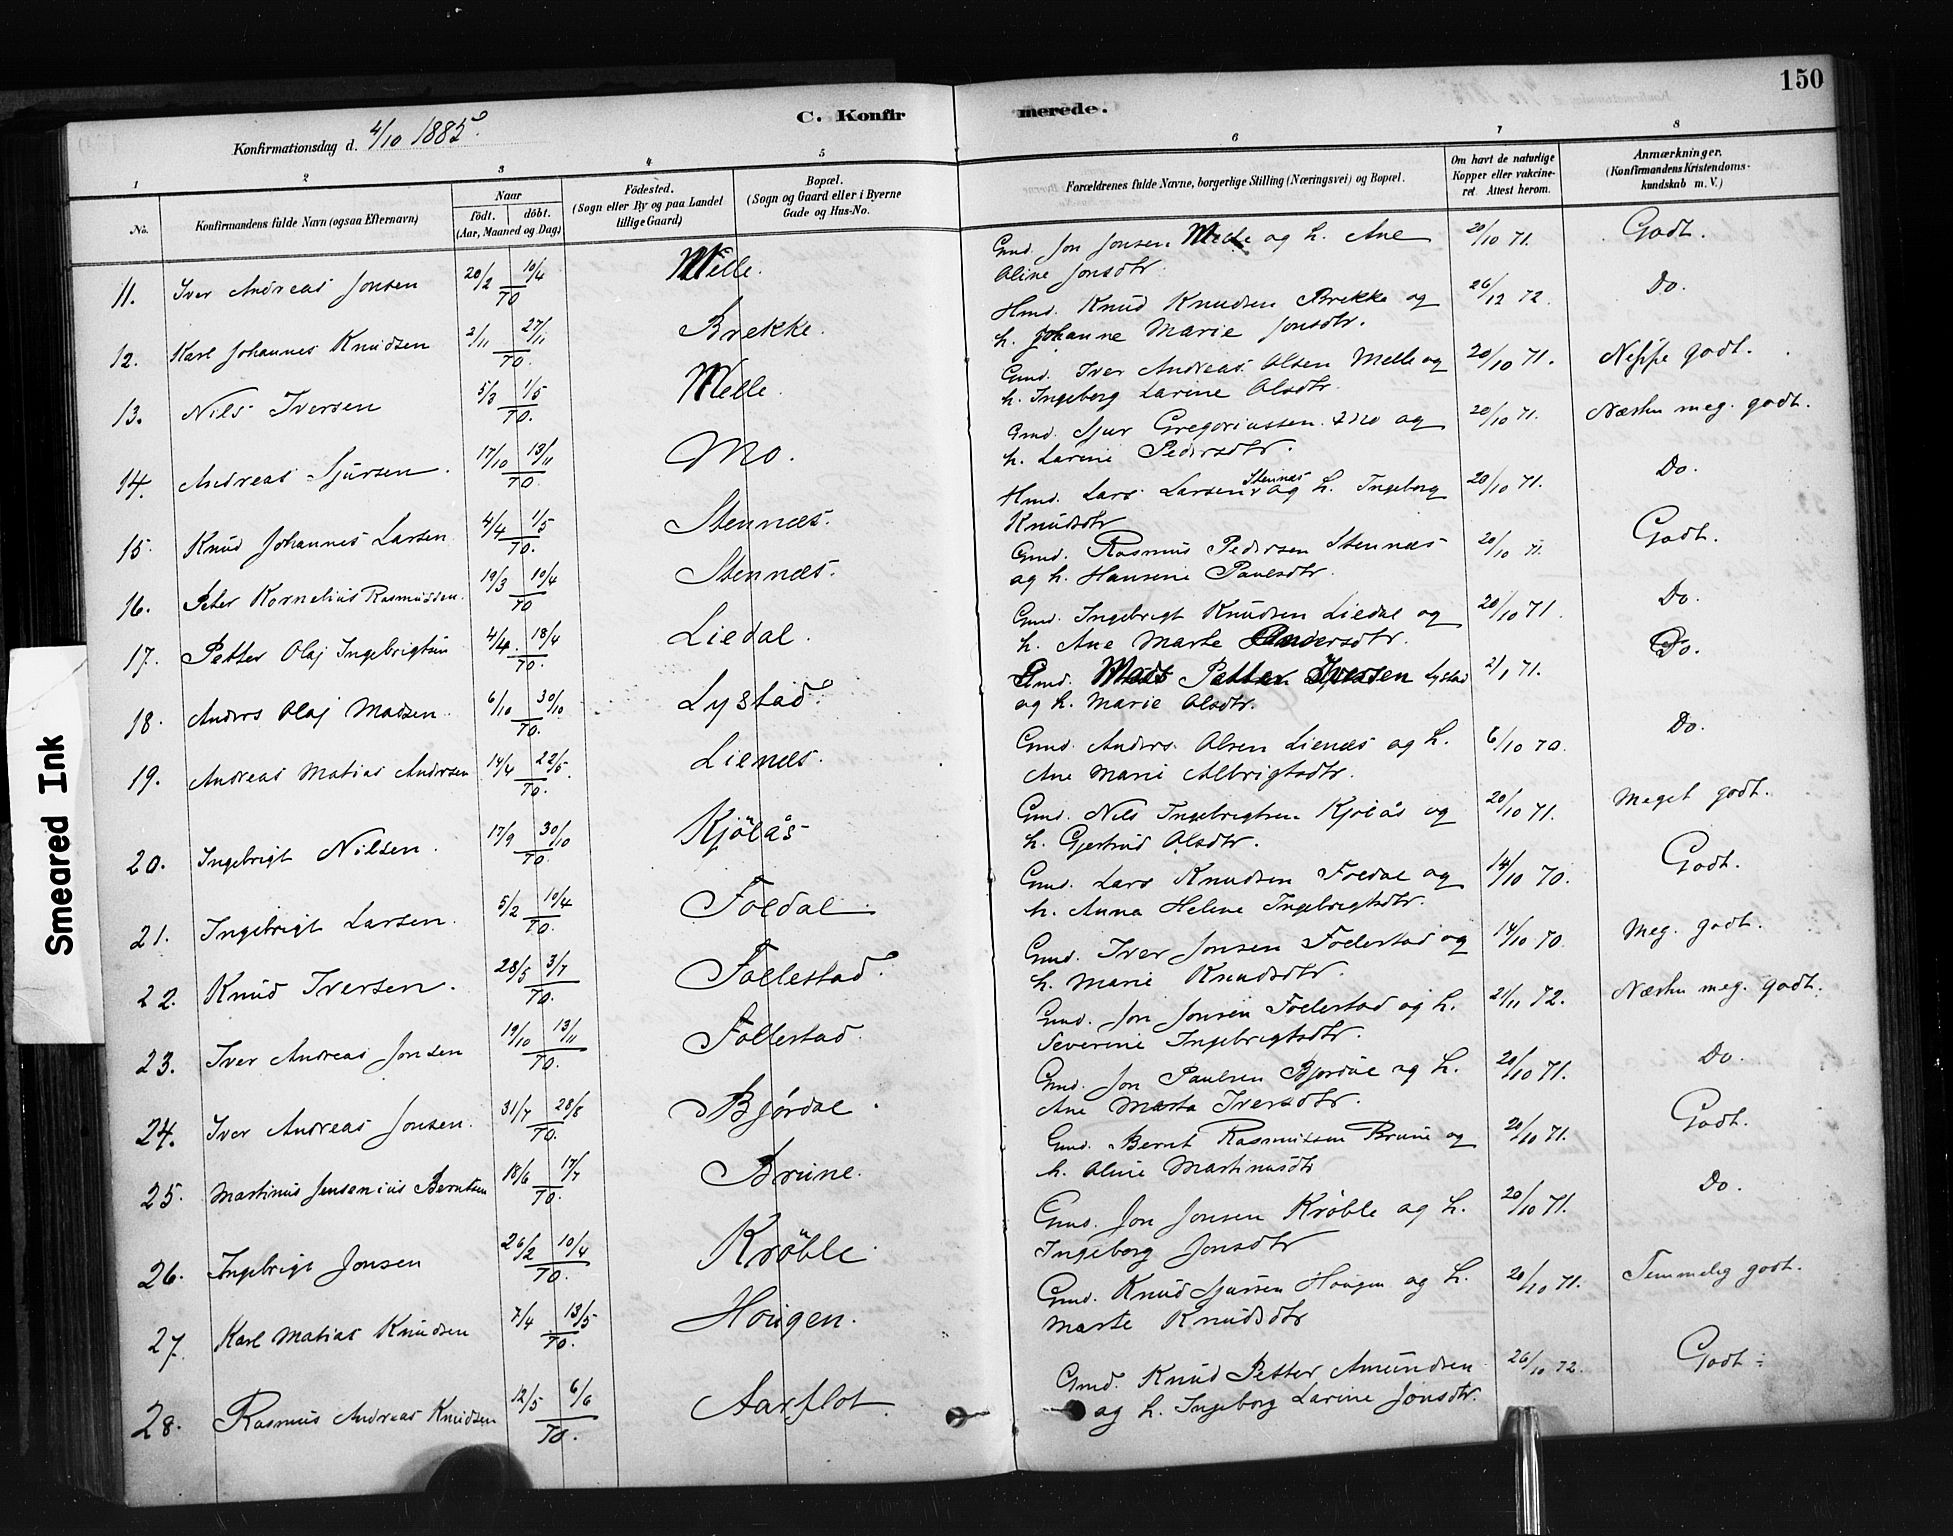 150
C. Konfirmerede.
Konfirmationsdag d. 4/10 1885.
1 2 3 4 5 6 7 8
No.
Konfirmandens fulde Navn (ogsaa Efternavn)
Naar
födt. döbt.
(Aar, Maaned og Dag)
Födested.
(Sogn eller By og paa Landet
tillige Gaard)
Bopæl.
(Sogn og Gaard eller i Byerne
Gade og Hus-No.
Forældrenes fulde Navne, borgerlige Stilling (Næringsvei) og Bopæl.
Om havt de naturlige
Kopper eller vakcine-
ret. Attest herom.
Anmærkninger.
(Konfirmandens Kristendoms-
kundskab m. V.)
11. Iver Andreas Jonsen 20/2 10/4 70 Melle. Gmd. Jon Jonsen Melle og h. Ane 20/10 71. Godt.
Oline Jonsdtr.
12. Karl Johannes Knudsen 2/11 27/11 70. Brekke. Hmd. Knud Knudsen Brekke og 26/12 72. Do.
h. Johanne Marie Jonsdtr.
13. Nils Iversen 5/3 1/5 70. Melle. Gmd. Iver Andreas Olsen Melle og 20/10 71. Neppe godt.
h. Ingeborg Larine Olsdtr.
14. Andreas Sjursen. 17/10 13/11 70. Mo. Gmd. Sjur Gregoriussen Mo og 20/10 71. Næsten meg. godt.
h. Larine Pedersdtr.
15. Knud Johannes Larsen 4/4 1/5 70. Stennæs. Hmd. Lars Larsen Stennæs og h. Ingeborg 20/10 71. Do.
Knudsdtr
16. Peter Kornelius Rasmussen. 19/3 10/4 70 Stennæs. Gmd. Rasmus Pedersen Stennæs 20/10 71. Godt.
og h. Hansine Paulsdtr.
17. Petter Olaj Ingebrigtsen 4/4. 18/4 70. Liedal. Gmd. Ingebrigt Knudsen Liedal og 20/10 71. Do.
h. Ane Marte Andersdtr.
18. Anders Olaj Madsen. 6/10 30/10 70. Lystad. Gmd. Mads Petter Iversen Lystad 2/1 71. Do.
og h. Marie Olsdtr.
19. Andreas Matias Andersen 14/4 22/5. 70. Lienæs. Gmd. Anders Olsen Lienæs og h. 6/10 70. Do.
Ane Marie Albrigtsdtr.
20. Ingebrigt Nilsen. 17/9 30/10 70. Kjölås Gmd. Nils Ingebrigtsen Kjölås og 20/10 71. Meget godt.
h. Gjertrud Olsdtr.
21. Ingebrigt Larsen. 5/2 10/4 70. Foldal. Gmd. Lars Knudsen Foldal og 14/10 70. Godt.
h. Anna Helene Ingebrigtsdtr.
22. Knud Iversen. 28/5 3/7 70. Follestad. Gmd. Iver Jonsen Follestad og 14/10 70. Meg. godt.
h. Marie Knudsdtr.
23. Iver Andreas Jonsen 19/10 13/11 70. Follestad. Gmd. Jon Jonsen Follestad og h. 21/11 72. Næsten meg. godt.
Severine Ingebrigtsdtr.
24. Iver Andreas Jonsen. 31/7 28/8 70. Bjørdal. Gmd. Jon Paulsen Bjørdal og h. 20/10 71. Do.
Ane Marta Iversdtr.
25. Martinus Jensenius Berntsen 18/6 17/7 70. Brune. Gmd. Bernt Rasmussen Brune og 20/10 71. Godt.
h. Oline Martinusdtr
26. Ingebrigt Jonsen 26/2 10/4 70. Kröble. Gmd. Jon Jonsen Kröble og h. 20/10 71. Do.
Ingeborg Jonsdtr
27. Karl Matias Knudsen 7/4 13/5 70. Hougen. Gmd. Knud Sjursen Hougen og h. 20/10 71. Temmelig godt.
Marte Knudsdtr
28. Rasmus Andreas Knudsen 12/5 6/6 70. Aarflot. Gmd. Knud Petter Amundsen 26/10 72. Godt.
og h. Ingeborg Larine Jonsdtr.
Smeared Ink